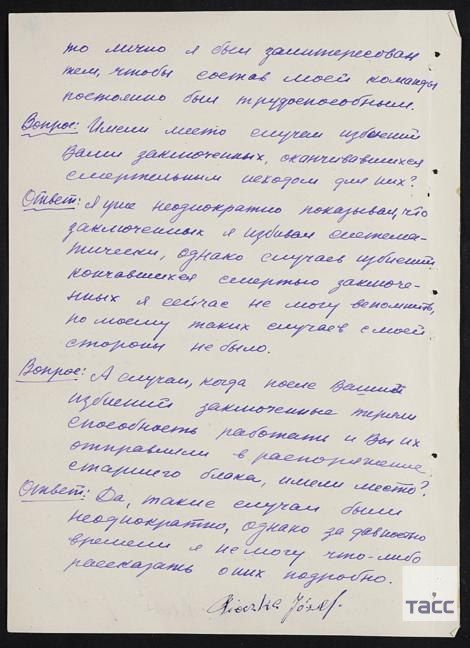 то лично я был заинтересован
тем, чтобы состав моей команды
постоянно был трудоспособным.
Вопрос: Имели место случаи избиений
Вами заключенных, оканчивавшихся
смертельным исходом для них?
Ответ: Я уже неоднократно показывал, что
заключенных я избивал система-
тически, однако случаев избиений,
кончавшихся смертью заключе-
нных я сейчас не могу вспомнить,
по моему таких случаев с моей
стороны не было.
Вопрос: А случаи, когда после Ваших
избиений заключенные теряли
способность работать и Вы их
отправляли в распоряжение
старшего блока, имели место?
Ответ: Да, такие случаи были
неоднократно, однако за давностью
времени я не могу что-либо
рассказать о них подробно.
Józef.
ТАСС